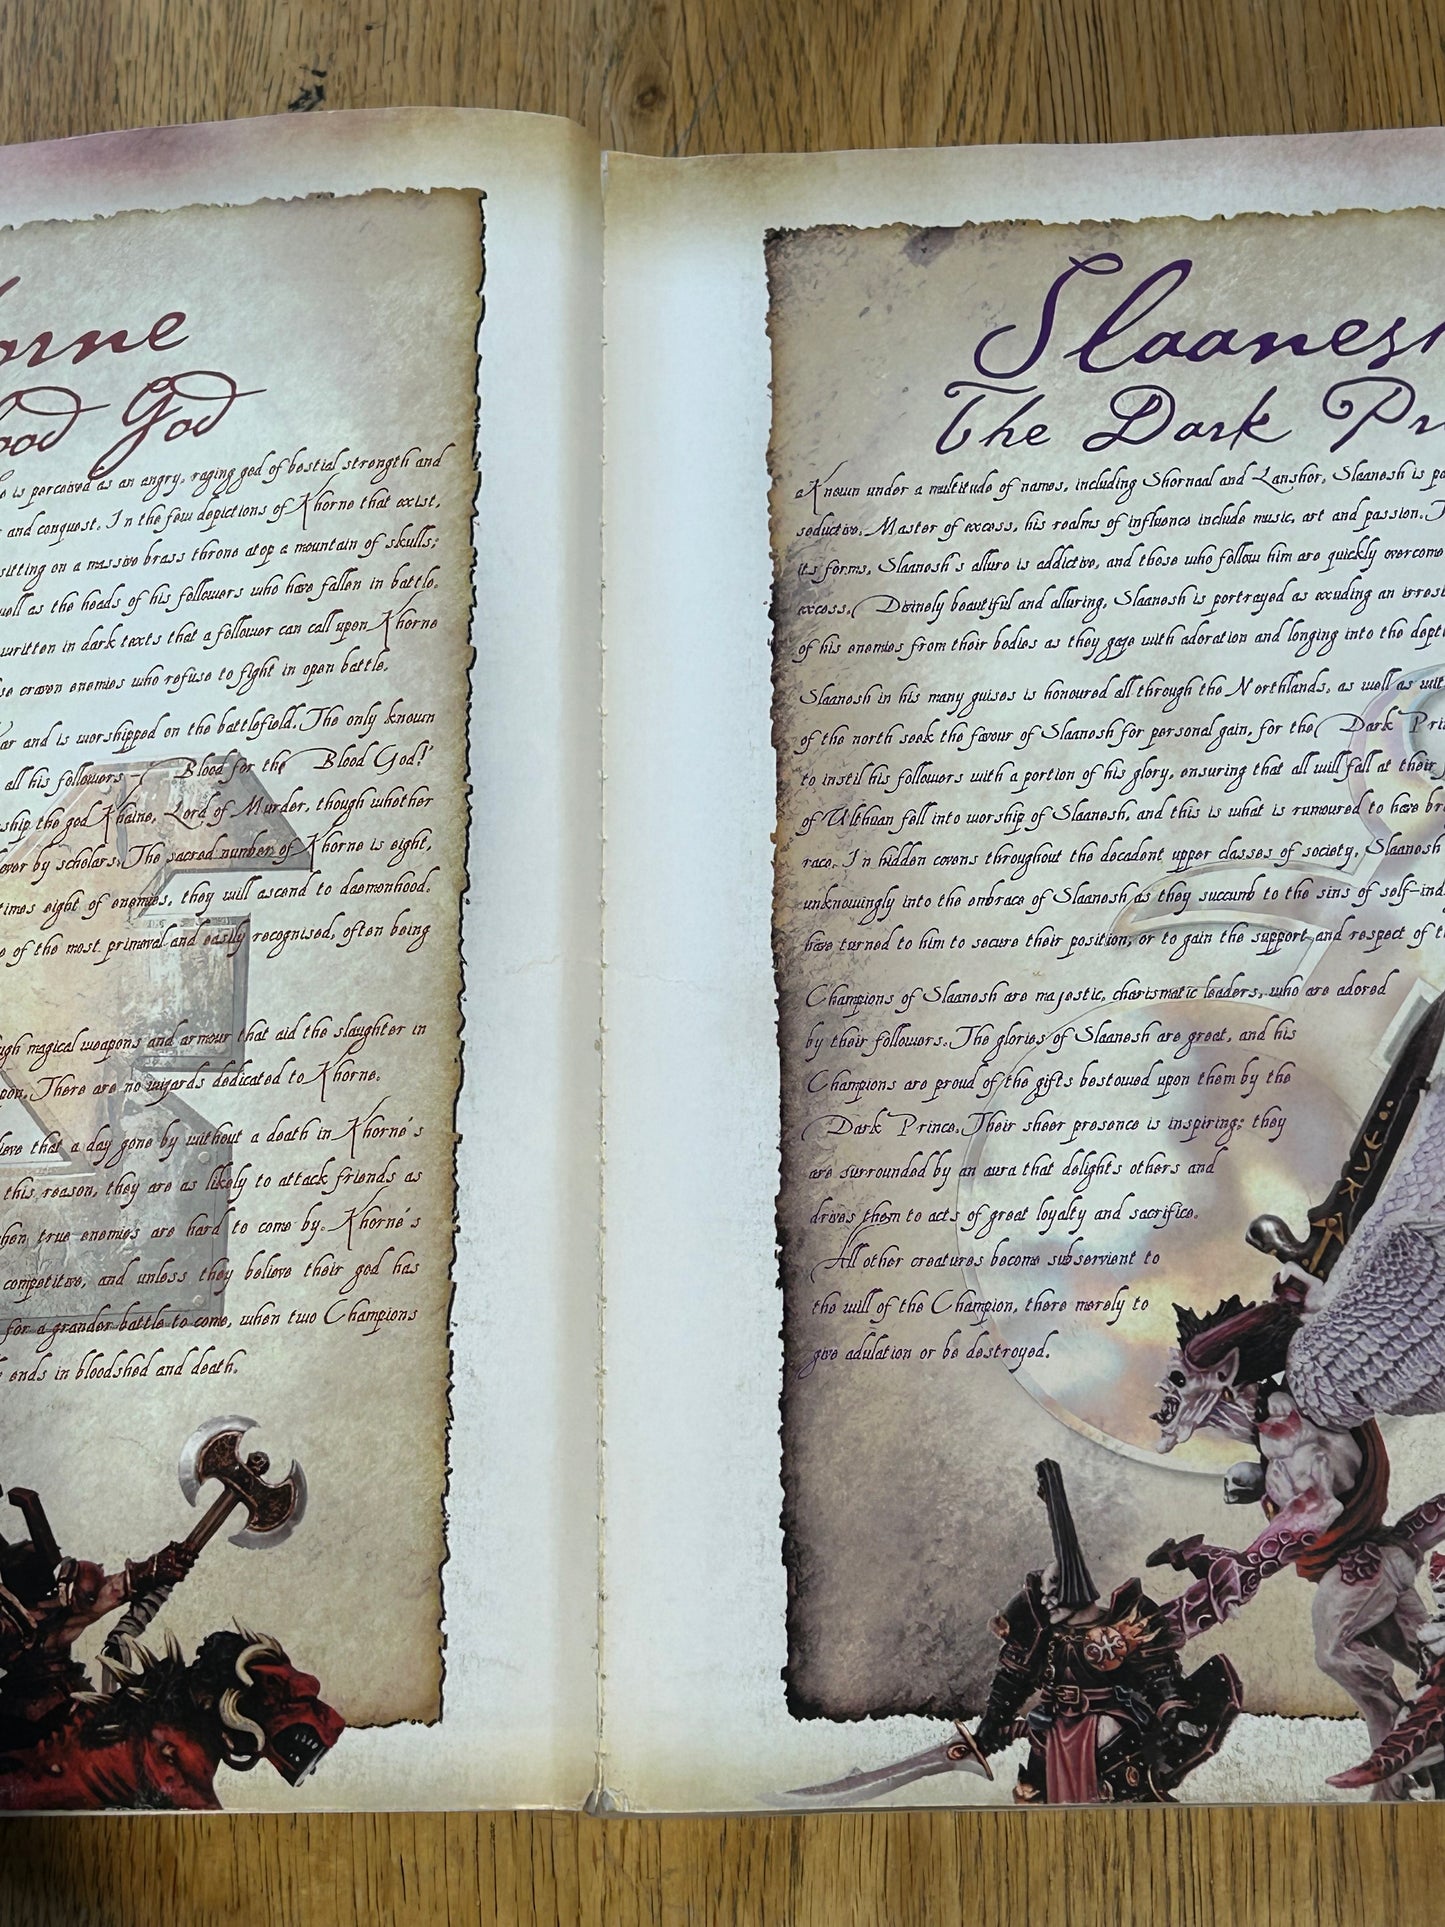 orne
ood God
e is perceived as an angry, raging god of bestial strength and
and conquest. In the few depictions of Khorne that exist,
sitting on a massive brass throne atop a mountain of skulls;
well as the heads of his followers who have fallen in battle.
written in dark texts that a follower can call upon Khorne
se craven enemies who refuse to fight in open battle.
ar and is worshipped on the battlefield. The only known
all his followers - 'Blood for the Blood God!'
ship the god Khaine, Lord of Murder, though whether
over by scholars. The sacred number of Khorne is eight,
times eight of enemies, they will ascend to daemonhood.
e of the most primeval and easily recognised, often being
ugh magical weapons and armour that aid the slaughter in
pon. There are no wizards dedicated to Khorne.
lieve that a day gone by without a death in Khorne's
this reason, they are as likely to attack friends as
hen true enemies are hard to come by. Khorne's
competitive, and unless they believe their god has
for a grander battle to come, when two Champions
ends in bloodshed and death.
Slaanesh
The Dark Pr
Known under a multitude of names, including Shornaal and Lanshor, Slaanesh is pa
seductive. Master of excess, his realms of influence include music, art and passion. T
its forms, Slaanesh's allure is addictive, and those who follow him are quickly overcome
excess. Divinely beautiful and alluring, Slaanesh is portrayed as exuding an irresi
of his enemies from their bodies as they gaze with adoration and longing into the dept
Slaanesh in his many guises is honoured all through the Northlands, as well as wit
of the north seek the favour of Slaanesh for personal gain, for the Dark Prin
to instil his followers with a portion of his glory, ensuring that all will fall at their
of Ulthuan fell into worship of Slaanesh, and this is what is rumoured to have br
race. In hidden covens throughout the decadent upper classes of society, Slaanesh
unknowingly into the embrace of Slaanesh as they succumb to the sins of self-ind
have turned to him to secure their position, or to gain the support and respect of t
Champions of Slaanesh are majestic, charismatic leaders, who are adored
by their followers. The glories of Slaanesh are great, and his
Champions are proud of the gifts bestowed upon them by the
Dark Prince. Their sheer presence is inspiring; they
are surrounded by an aura that delights others and
drives them to acts of great loyalty and sacrifice.
All other creatures become subservient to
the will of the Champion, there merely to
give adulation or be destroyed.